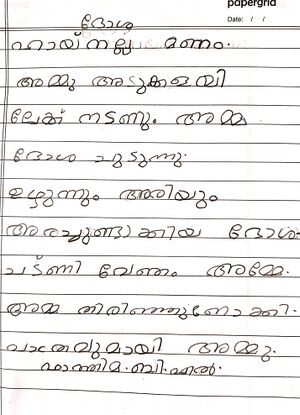 papergrid
Date: / /
ദോശ
ഹായ് നല്ല മണം.
അമ്മു അടുക്കളയി
ലേക്ക് നടന്നു. അമ്മ
ദോശ ചുടുന്നു.
ഉഴുന്നും അരിയും
അരച്ചുണ്ടാക്കിയ ദോശ.
ചട്ണി വേണം അമ്മേ.
അമ്മ തിരിഞ്ഞുനോക്കി.
പാത്രവുമായി അമ്മു.
ഫാത്തിമ. ബി. എൽ.